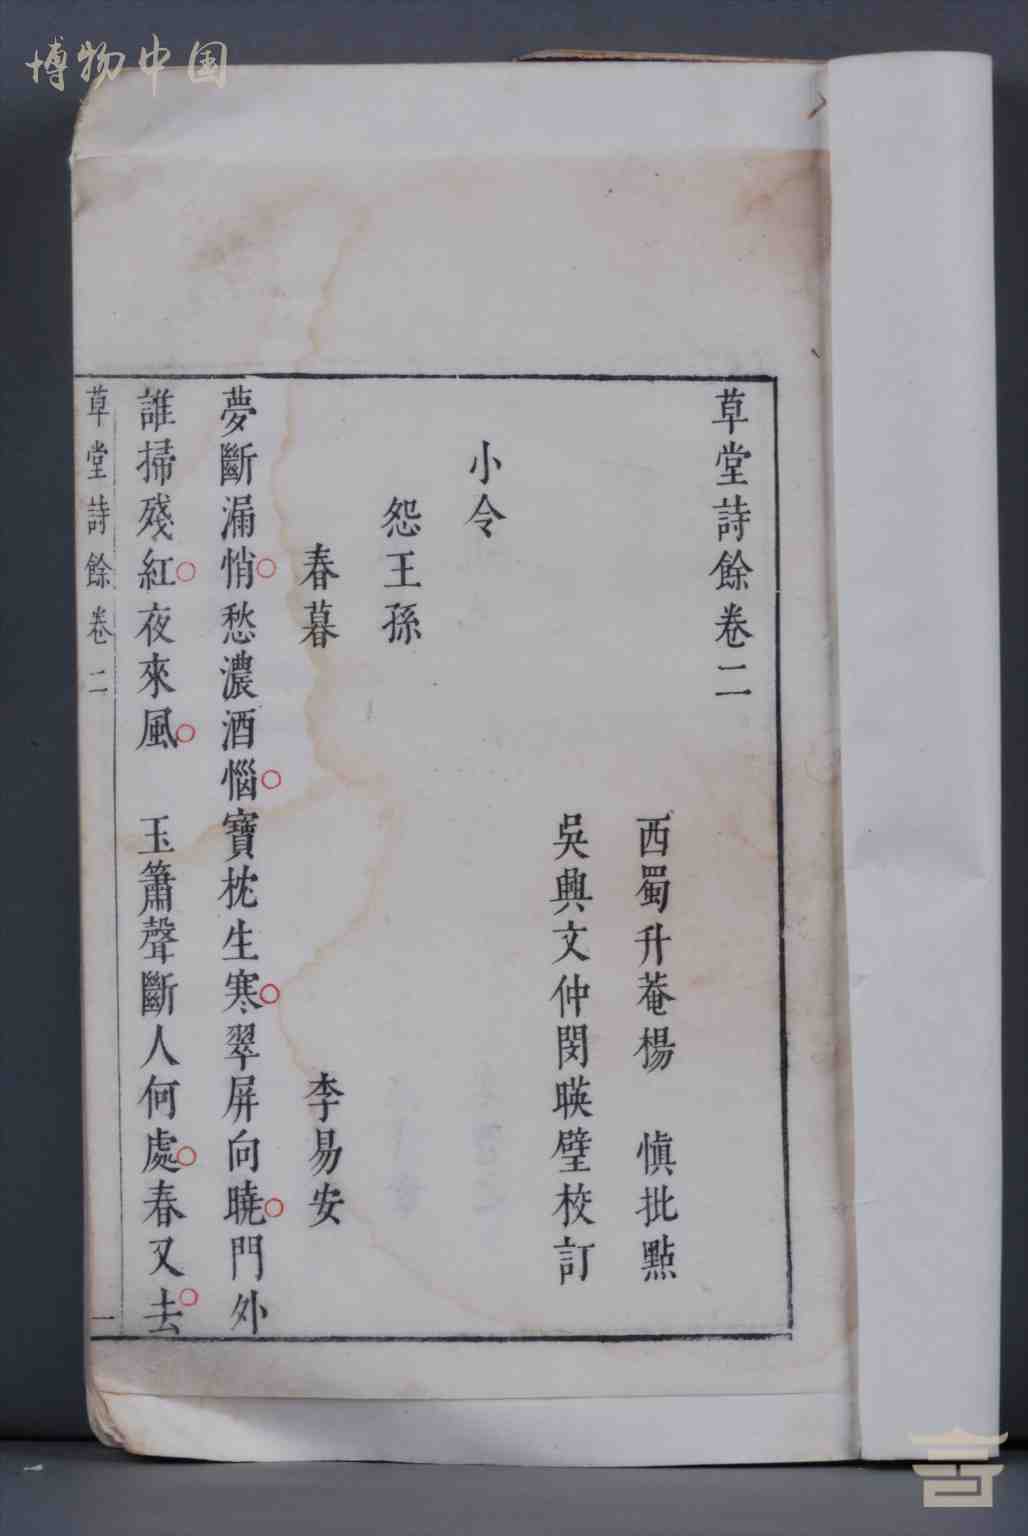 博物中国
草堂詩餘卷二
西蜀升菴楊　慎批點
吳興文仲閔暎璧校訂
小令
怨王孫
春暮　李易安
夢斷漏悄愁濃酒惱寶枕生寒翠屏向曉門外
誰掃殘紅夜來風　玉簫聲斷人何處春又去
草堂詩餘卷二　一